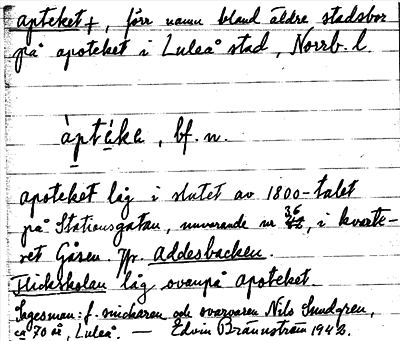 apteket +, förr namn bland äldre stadsbor
på apoteket i Luleå stad, Norrb. l.
àptéke, bf. n.
apoteket låg i slutet av 1800-talet
på Stationsgatan, nuvarande nr 36, i kvarte-
ret Gåsen. Jfr. Addesbacken.
Flickskolan låg ovanpå apoteket.
Sagesman: f. snickaren och svarvaren Nils Sundgren,
ca 70 år, Luleå. — Edvin Brännström 1943.